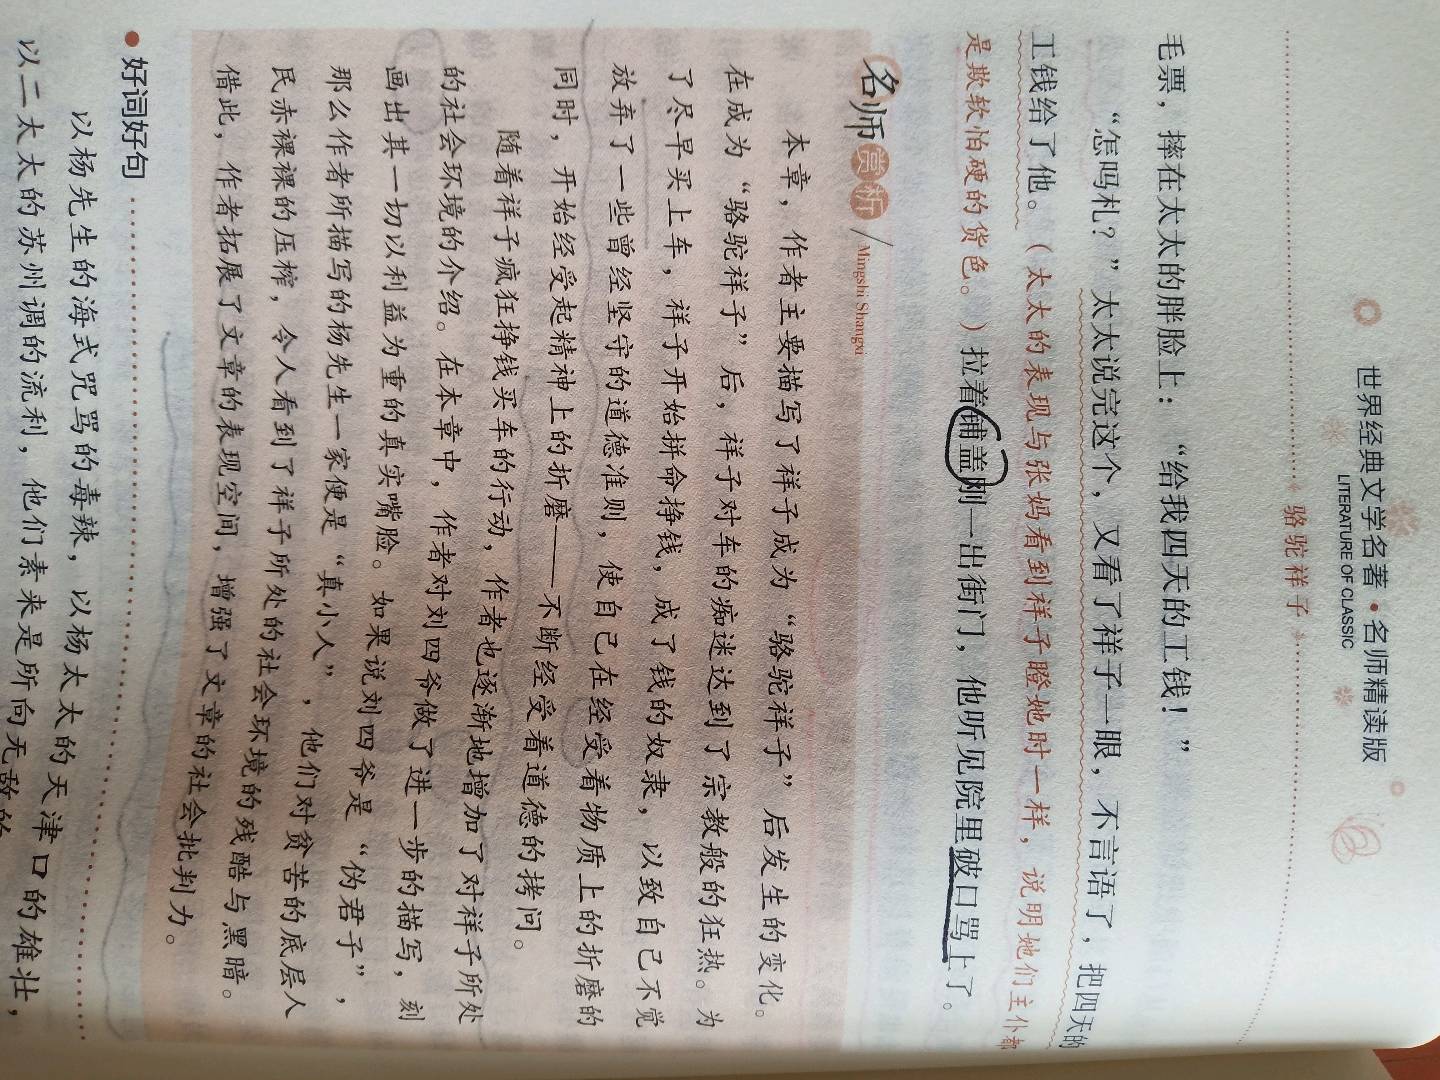 世界经典文学名著·名师精读版
LITERATURE OF CLASSIC
骆驼祥子
毛票，摔在太太的胖脸上：“给我四天的工钱！”
“怎吗札？”太太说完这个，又看了祥子一眼，不言语了，把四天的
工钱给了他。（太太的表现与张妈看到祥子瞪她时一样，说明她们主仆都
是欺软怕硬的货色。）拉着铺盖刚一出街门，他听见院里破口骂上了。
名师赏析
Mingshi Shangxi
本章，作者主要描写了祥子成为“骆驼祥子”后发生的变化。
在成为“骆驼祥子”后，祥子对车的痴迷达到了宗教般的狂热。为
了尽早买上车，祥子开始拼命挣钱，成了钱的奴隶，以致自己不觉
放弃了一些曾经坚守的道德准则，使自己在经受着物质上的折磨的
同时，开始经受起精神上的折磨——不断经受着道德的拷问。
随着祥子疯狂挣钱买车的行动，作者也逐渐地增加了对祥子所处
的社会环境的介绍。在本章中，作者对刘四爷做了进一步的描写，刻
画出其一切以利益为重的真实嘴脸。如果说刘四爷是“伪君子”，
那么作者所描写的杨先生一家便是“真小人”，他们对贫苦的底层人
民赤裸裸的压榨，令人看到了祥子所处的社会环境的残酷与黑暗。
借此，作者拓展了文章的表现空间，增强了文章的社会批判力。
好词好句
以杨先生的海式咒骂的毒辣，以杨太太的天津口的雄壮，
以二太太的苏州调的流利，他们素来是所向无敌的